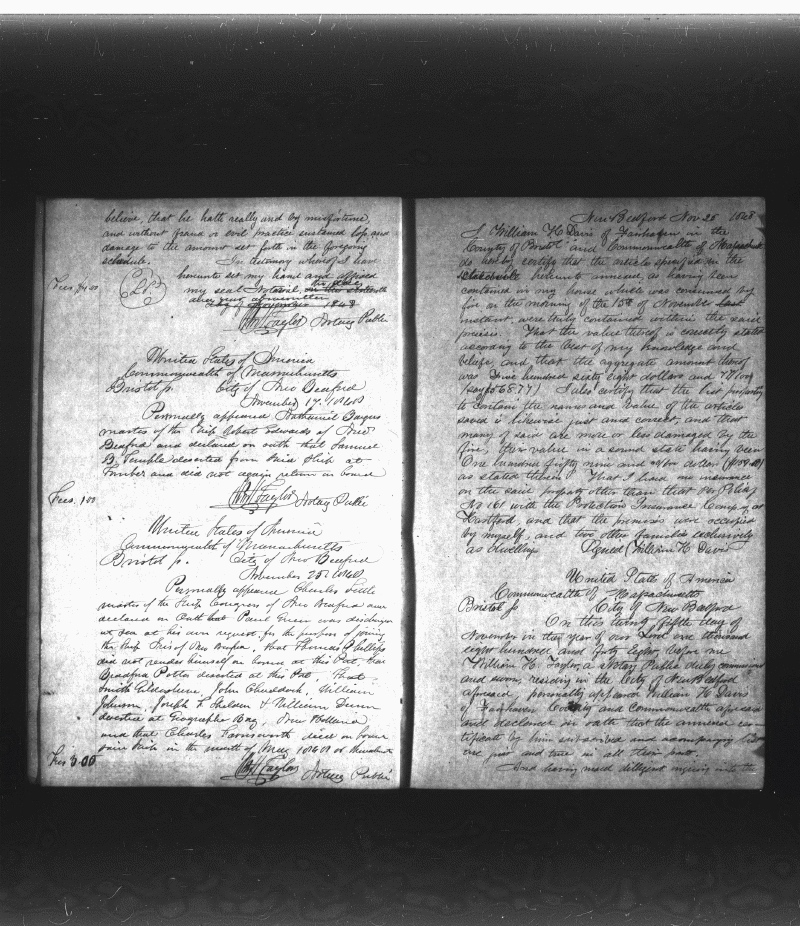 believe, that he hath really and by misfortune,
and without fraud or evil practice sustained loss, and
damage to the amount set forth in the foregoing
schedule. In testimony whereof I have
hereunto set my hand and affixed
my seal Notarial,
November 1848
Fees
L.S.
Wm H Taylor Notary Public
United States of America
Commonwealth of Massachusetts
Bristol ss. City of New Bedford
November 17. 1848
Personally appeared Nathaniel
master of the Ship Robert Edwards of New
Bedford and declared on oath that Samuel
B. Temple deserted from said Ship at
Tumbez and did not again return on board
Wm H Taylor Notary Public
Fees. 1.00
United States of America
Commonwealth of Massachusetts
Bristol ss. City of New Bedford
November 25. 1848
Personally appeared Charles
master of the Ship Congress of New Bedford and
declared on Oath that Paul Green was discharged
at Sea at his own request for the purpose of joining
the Ship of New Bedford, that Thomas Phillips
did not render himself on board at this Port, that
Bradford Potter deserted at this Port. That
Smith John William
Johnson, Joseph F. Sheldon & William Dunn
deserted at Geographe Bay, New Holland
and that Charles Farnsworth died on board
said Ship in the month of May 1848
Wm H Taylor Notary Public
Fees
New Bedford Nov 25 1848
I William H Davis of Fairhaven in the
County of Bristol and Commonwealth of Massachusetts
do hereby certify that the articles specified in the
schedule hereunto annexed, as having been
contained in my house which was consumed by
fire on the morning of the 15th of November
instant, were truly contained within the said
premises. That the value thereof is correctly stated
according to the best of my knowledge and
belief, and that the aggregate amount thereof
was Five hundred sixty eight dollars and 77/100
(say \$568.77). I also certify that the list purporting
to contain the names and value of the articles
saved is likewise just and correct, and that
many of said are more or less damaged by the
fire, their value in a sound state having been
One hundred fifty nine and dollars
as stated therein. That I had no insurance
on the said property other than that on Policy
No 161 with the Protection Insurance Company at
Hartford, and that the premises were occupied
by myself, and two other families exclusively
as dwellings. Signed William H Davis
United States of America
Commonwealth of Massachusetts
Bristol ss City of New Bedford
On this twenty fifth day of
November in the year of our Lord one thousand
eight hundred and forty eight before me
William H. Taylor a Notary Public duly commissioned
and sworn, residing in the City of New Bedford
aforesaid, personally appeared William H Davis
of Fairhaven County and Commonwealth aforesaid
and declared on oath that the annexed cer-
tificate by him subscribed and accompanying list
are just and true in all their parts.
And having made diligent inquiry into the